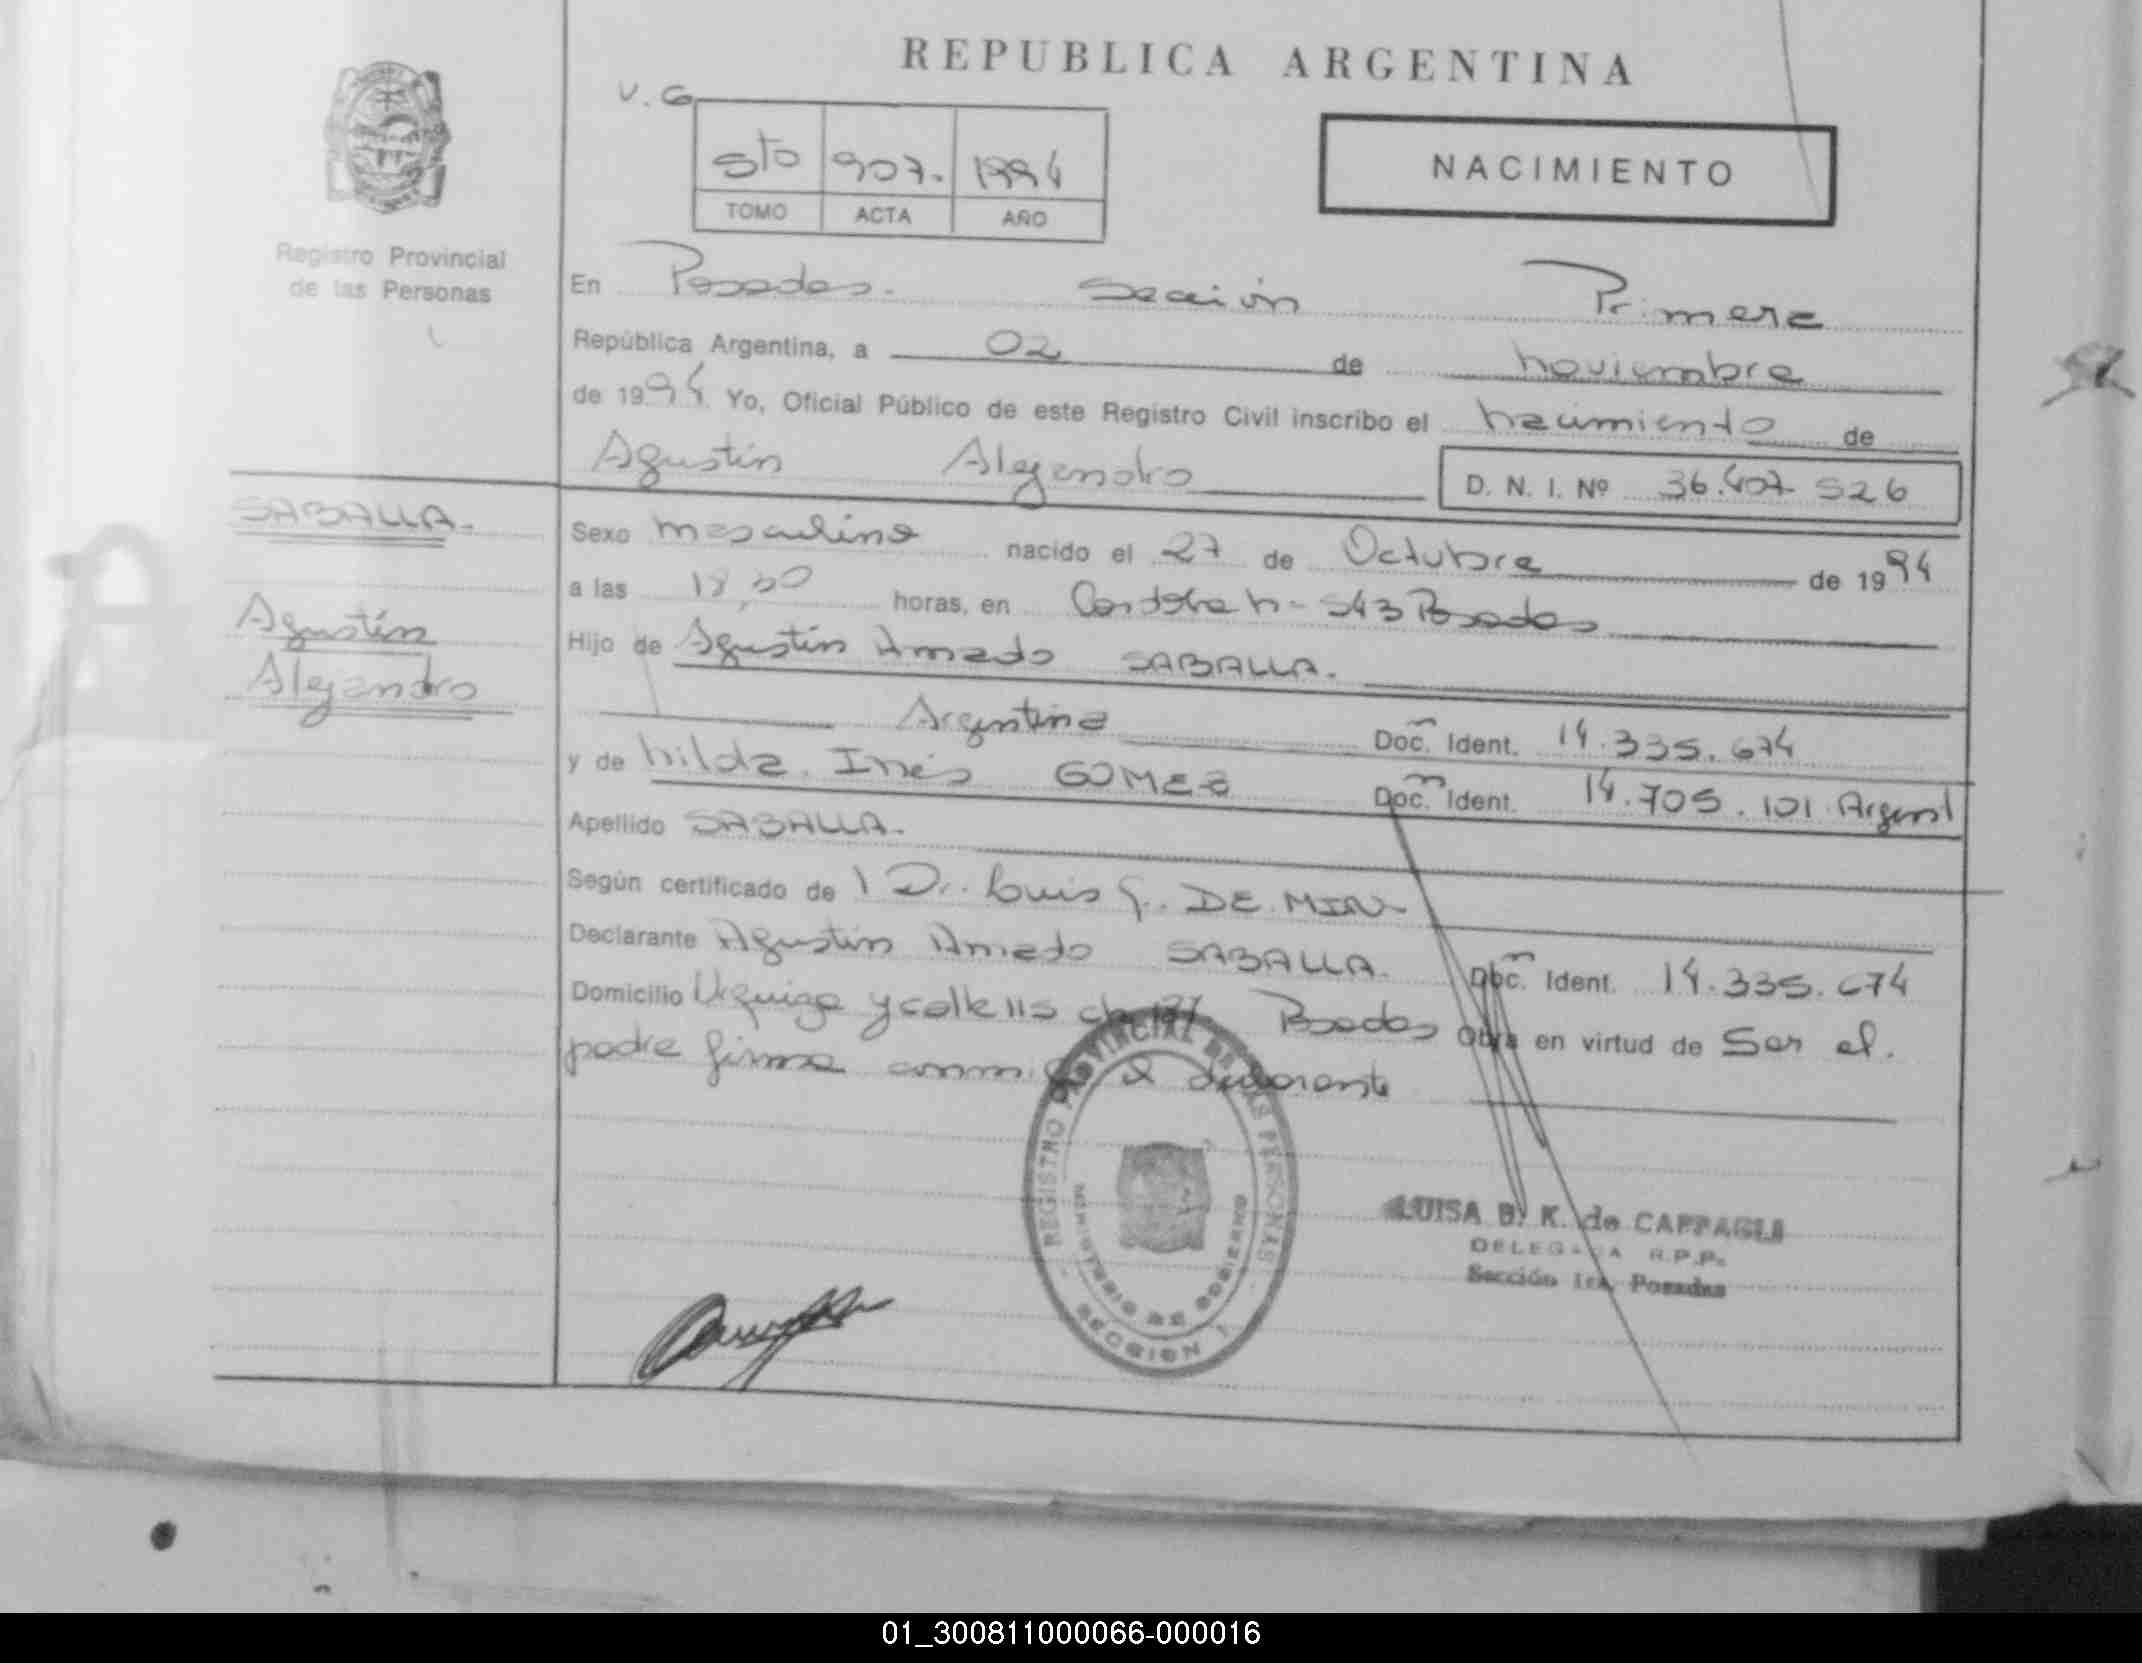 REPUBLICA ARGENTINA
V. G
5to 907. 1994
TOMO ACTA AÑO
NACIMIENTO
Registro Provincial
de las Personas
En Posadas. Sección Primera
República Argentina, a 02 de noviembre
de 1994 Yo, Oficial Público de este Registro Civil inscribo el nacimiento de
Agustín Alejandro D. N. I. Nº 36.407.526
SABALLA.
Agustín
Alejandro
Sexo masculino nacido el 27 de Octubre de 1994
a las horas, en Cordoba n- 543 Posadas
Hijo de Agustín Amado SABALLA.
Argentina Doc. Ident. 14.335.674
y de hilda Inés GOMEZ Doc. Ident. 14.705.101 Argent
Apellido SABALLA.
Según certificado de Dr. Luis G. DE MIN
Declarante Agustín Amado SABALLA. Doc. Ident. 14.335.674
Domicilio Urquiza y calle 115 Posadas Obra en virtud de Ser el.
padre firma el declarante
REGISTRO PROVINCIAL DE LAS PERSONAS
MINISTERIO DE GOBIERNO
SECCION 1
LUISA B. K. de
DELEGADA R.P.P.
Sección 1ra. Posadas
01_300811000066-000016